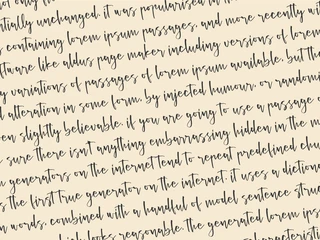 not only
ntially unchanged. it was popularised in
s containing lorem ipsum passages, and more recently wi
ftware like aldus page maker including versions of lorem
y variations of passages of lorem ipsum available, but th
d alteration in some form, by injected humour, or randomi
en slightly believable. if you are going to use a passage o
sure there isn't anything embarrassing hidden in the m
n generators on the internet tend to repeat predefined chu
s the first true generator on the internet. it uses a dictiona
n words, combined with a handful of model sentence struc
which looks reasonable. the generated lorem ips
characteristi